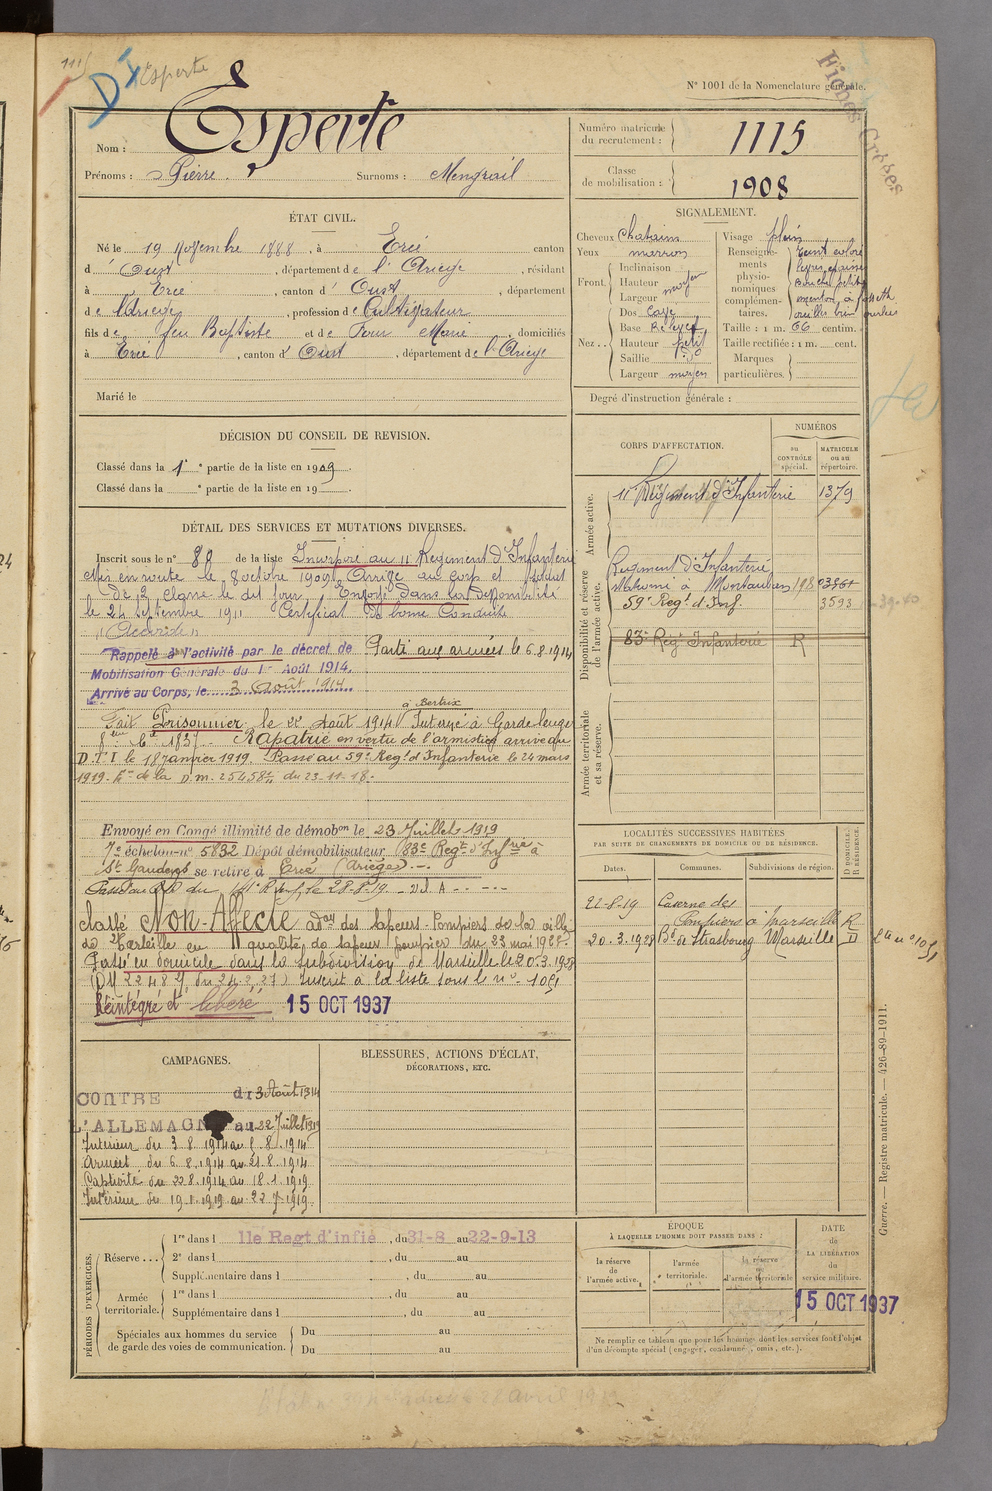 1115
D
Esperte
Fiches Créées
N° 1001 de la Nomenclature générale.
Nom : Esperte
Prénoms : Pierre. Surnoms : Mengrail
Numéro matricule du recrutement : 1115
Classe de mobilisation : 1908
ÉTAT CIVIL.
Né le 19 Novembre 1888, à Ercé canton
d' Oust, département de l'Ariège, résidant
à Ercé, canton d' Oust, département
de l'Ariège, profession de Cultivateur
fils de feu Baptiste et de Marie, domiciliés
à Ercé, canton d' Oust, département de l'Ariège
Marié le
SIGNALEMENT.
Cheveux Chatains
Yeux marrons
Front. Inclinaison
Hauteur moyen
Largeur
Nez .. Dos
Base
Hauteur petit
Saillie
Largeur moyen
Visage plein
Renseignements physionomiques complémentaires. Teint coloré
menton à
Taille : 1 m. 66 centim.
Taille rectifiée : 1 m. cent.
Marques particulières.
Degré d'instruction générale :
DÉCISION DU CONSEIL DE REVISION.
Classé dans la 1e partie de la liste en 1909.
Classé dans la e partie de la liste en 19
DÉTAIL DES SERVICES ET MUTATIONS DIVERSES.
Inscrit sous le n° 80 de la liste Incorporé au 11e Régiment d'Infanterie
Mis en route le 8 octobre 1909. Arrivé au corps et soldat
de 2e classe le dit jour. Envoyé dans la disponibilité
le 24 septembre 1911 Certificat de bonne Conduite
"Accordé"
Rappelé à l'activité par le décret de
Mobilisation Générale du 1er Août 1914.
Arrivé au Corps, le 3 Août 1914
Parti aux armées le 6.8.1914
à Bertrix
Fait Prisonnier le 22 Août 1914 Interné à Gardelegen
Rapatrié en vertu de l'armistice arrivé au
D.T.I le 18 Janvier 1919. Passé au 59e Regt d'Infanterie le 24 mars
1919. de la D.M. du 23.11.18.
Envoyé en Congé illimité de démobon le 23 Juillet 1919
7e échelon no 5832 Dépôt démobilisateur 83e Regt d'Infrie à
St Gaudens se retire à Ercé (Ariège)
28.8.19.
Classé Non-Affecté des Sapeurs-Pompiers de la ville
de Marseille en qualité de sapeur pompier du 23 mai 1928.
Passé en domicile dans la subdivision de Marseille le 20.3.1928
inscrit à la liste sous le n° 1051
Réintégré et libéré 15 OCT 1937
CORPS D'AFFECTATION.
NUMÉROS
au CONTRÔLE spécial.
MATRICULE ou au répertoire.
Armée active.
11e Régiment d'Infanterie 1379
Disponibilité et réserve de l'armée active.
Régiment d'Infanterie
à Montauban
59e Regt d'Inf. 3593
83e Regt Infanterie R
Armée territoriale et sa réserve.
LOCALITÉS SUCCESSIVES HABITÉES
PAR SUITE DE CHANGEMENTS DE DOMICILE OU DE RÉSIDENCE.
Dates. Communes. Subdivisions de région. D DOMICILE. R RÉSIDENCE.
22-8-19 Caserne des
Pompiers à Marseille R
20.3.1928 Bd de Strasbourg Marseille D
L a n° 1051
CAMPAGNES.
CONTRE du 3 Août 1914
L'ALLEMAGNE au 22 Juillet 1919
Intérieur du 3.8.1914 au 5.8.1914
Armées du 6.8.1914 au 21.8.1914
Captivité du 22.8.1914 au 18.1.1919
Intérieur du 19.1.1919 au 22.7.1919
BLESSURES, ACTIONS D'ÉCLAT,
DÉCORATIONS, ETC.
Guerre. — Registre matricule. — 426-89-1911.
PÉRIODES D'EXERCICES.
Réserve... 1re dans l 11e Regt d'infie, du 31-8 au 22-9-13
2e dans l, du au
Supplémentaire dans l, du au
Armée territoriale. 1re dans l, du au
Supplémentaire dans l, du au
Spéciales aux hommes du service de garde des voies de communication. Du au
Du au
ÉPOQUE
À LAQUELLE L'HOMME DOIT PASSER DANS :
la réserve de l'armée active.
l'armée territoriale.
la réserve de l'armée territoriale
DATE de LA LIBÉRATION du service militaire.
15 OCT 1937
Ne remplir ce tableau que pour les hommes dont les services font l'objet
d'un décompte spécial (engagés, condamnés, omis, etc.).